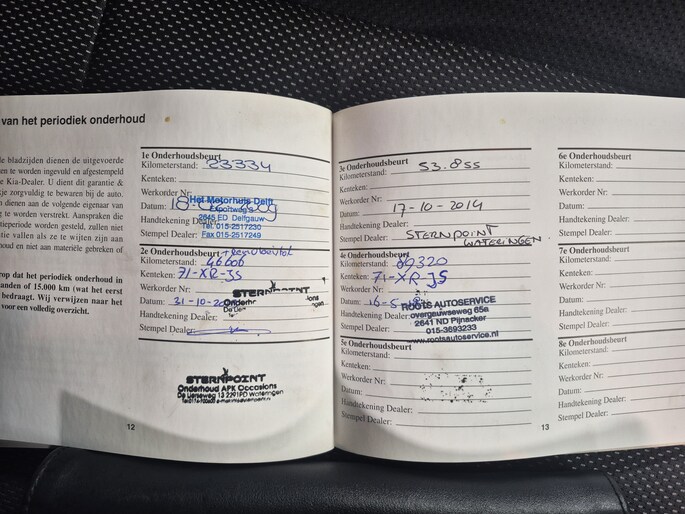 van het periodiek onderhoud
e bladzijden dienen de uitgevoerde
te worden ingevuld en afgestempeld
e Kia-Dealer. U dient dit garantie &
kje zorgvuldig te bewaren bij de auto.
en dienen aan de volgende eigenaar van
g te worden verstrekt. Aanspraken die
tieperiode worden gesteld, zullen niet
uit vallen als ze te wijten zijn aan
houd en niet aan materiële gebreken of
rop dat het periodiek onderhoud in
anden of 15.000 km (wat het eerst
bedraagt. Wij verwijzen naar het
voor een volledig overzicht.
1e Onderhoudsbeurt
Kilometerstand: 23334
Kenteken:
Werkorder Nr:
Het Motorhuis Delft
Datum: 18
Exportweg
2645 ED Delfgauw
Handtekening
Tel. 015-2517230
Stempel Dealer: Fax 015-2517249
2e Onderhoudsbeurt
Kilometerstand: 46606
Kenteken: 71-XR-JS
Werkorder Nr:
STERNPOINT
Datum: 31-10-20
Onderho
Handtekening Dealer:
Stempel Dealer:
STERNPOINT
Onderhoud APK Occasions
De Lierseweg 13 2291PD Wateringen
12
3e Onderhoudsbeurt
Kilometerstand: 53.855
Kenteken:
Werkorder Nr:
Datum: 17-10-2014
Handtekening Dealer:
Stempel Dealer: STERNPOINT
WATERINGEN
4e Onderhoudsbeurt
Kilometerstand: 69320
Kenteken: 71-XR-JS
Werkorder Nr:
Datum: 16-5
ROOTS AUTOSERVICE
Handtekening
overgauwseweg 65a
2641 ND Pijnacker
Stempel Dealer:
015-3693233
www.rootsautoservice.nl
5e Onderhoudsbeurt
Kilometerstand:
Kenteken:
Werkorder Nr:
Datum:
Handtekening Dealer:
Stempel Dealer:
13
6e Onderhoudsbeurt
Kilometerstand:
Kenteken:
Werkorder Nr:
Datum:
Handtekening Dealer:
Stempel Dealer:
7e Onderhoudsbeurt
Kilometerstand:
Kenteken:
Werkorder Nr:
Datum:
Handtekening Dealer:
Stempel Dealer:
8e Onderhoudsbeurt
Kilometerstand:
Kenteken:
Werkorder Nr:
Datum:
Handtekening Dealer:
Stempel Dealer: